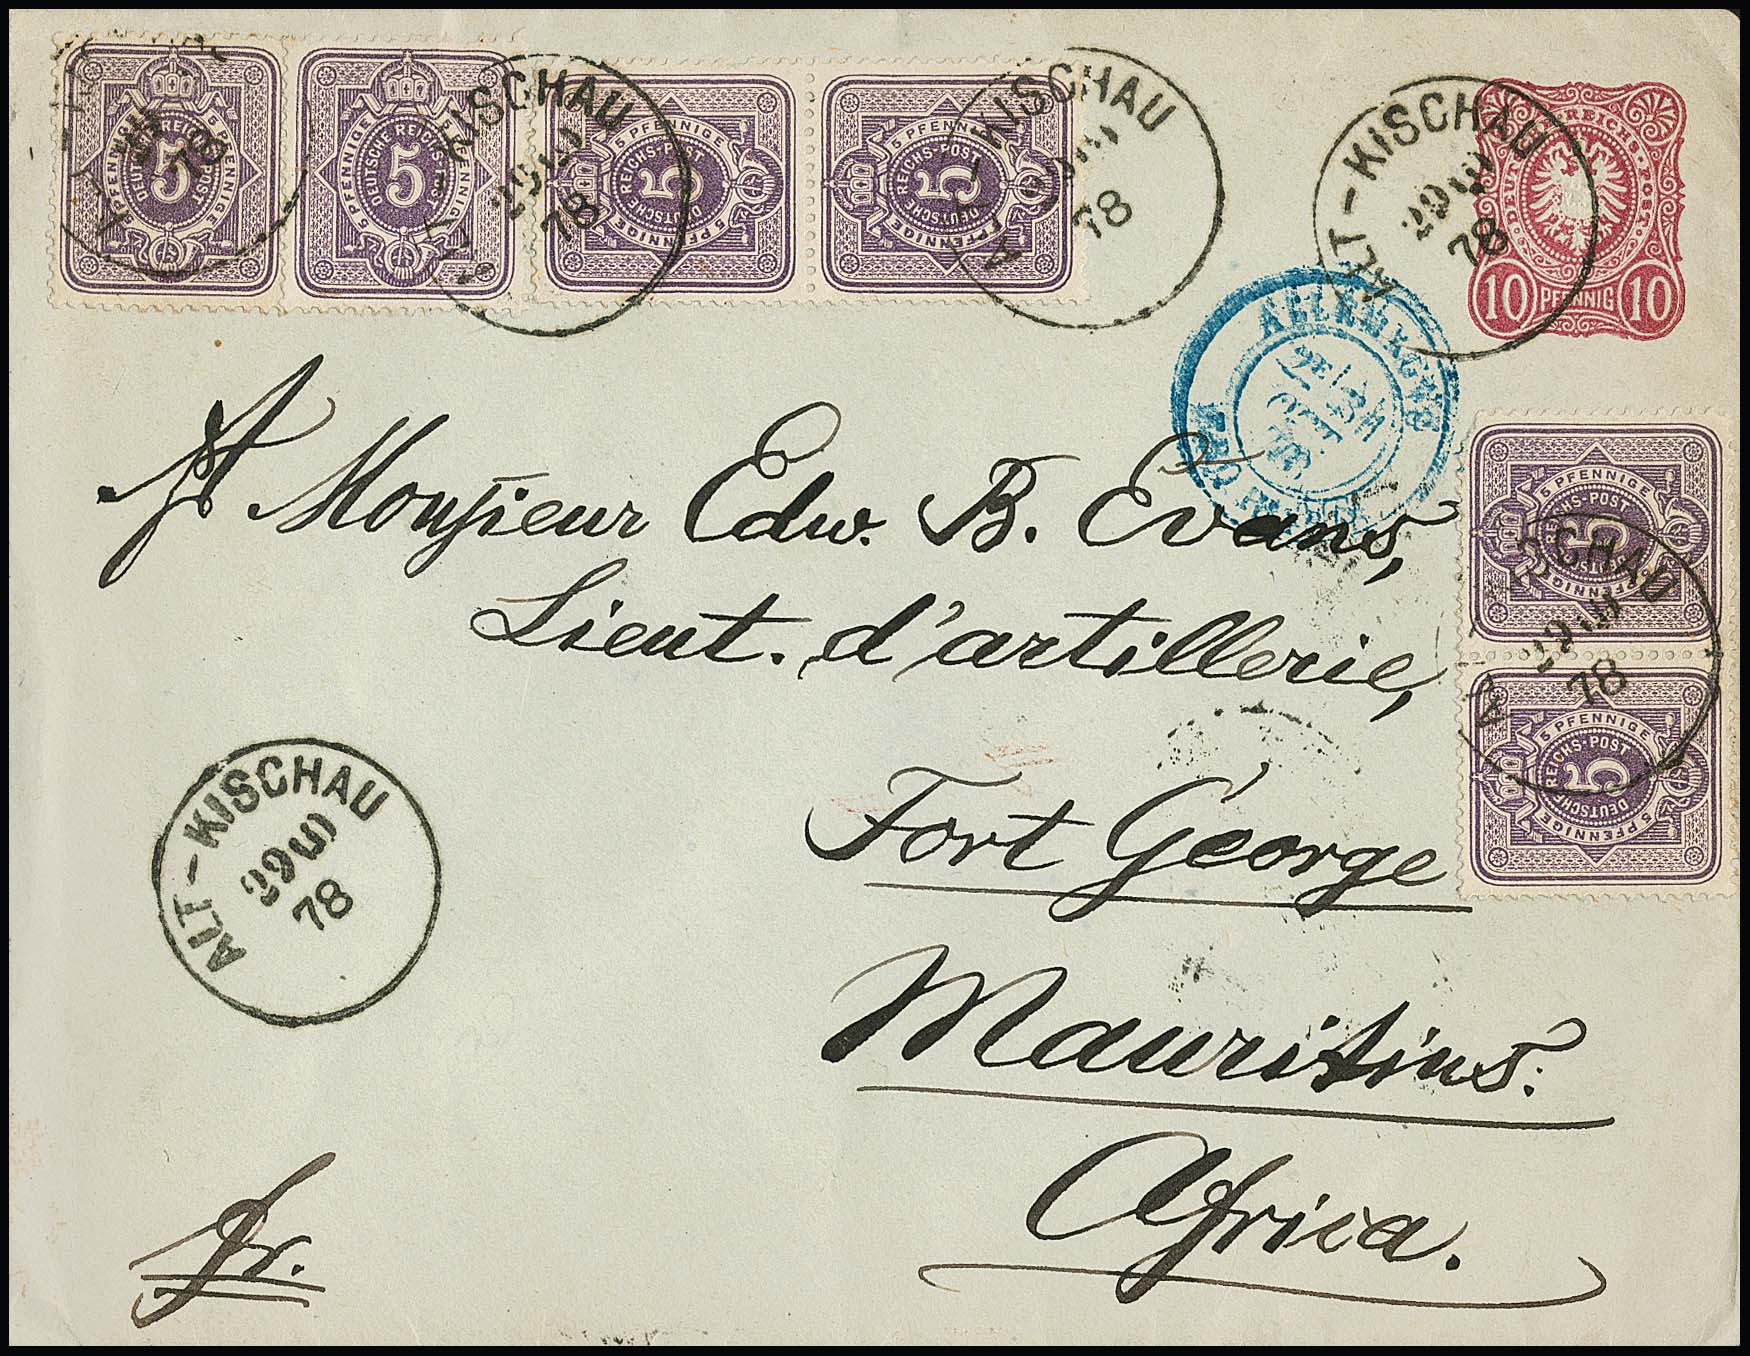 5 PFENNIGE 5 PFENNIGE
DEUTSCHE REICHS-POST
5
5 PFENNIGE 5 PFENNIGE
DEUTSCHE REICHS-POST
5
5 PFENNIGE 5 PFENNIGE
DEUTSCHE REICHS-POST
5
5 PFENNIGE 5 PFENNIGE
DEUTSCHE REICHS-POST
5
KISCHAU
29
78
KISCHAU
78
ALT-KISCHAU
29
78
DEUTSCHE REICHS-POST
10 PFENNIG 10
ALLEMAGNE
OCT
78
A Monsieur Edw. B. Evans,
Lieut. d'artillerie,
Fort George
Mauritius.
Africa.
fr.
5 PFENNIGE 5 PFENNIGE
DEUTSCHE REICHS-POST
5
5 PFENNIGE 5 PFENNIGE
DEUTSCHE REICHS-POST
5
SCHAU
29
78
ALT-KISCHAU
29
78